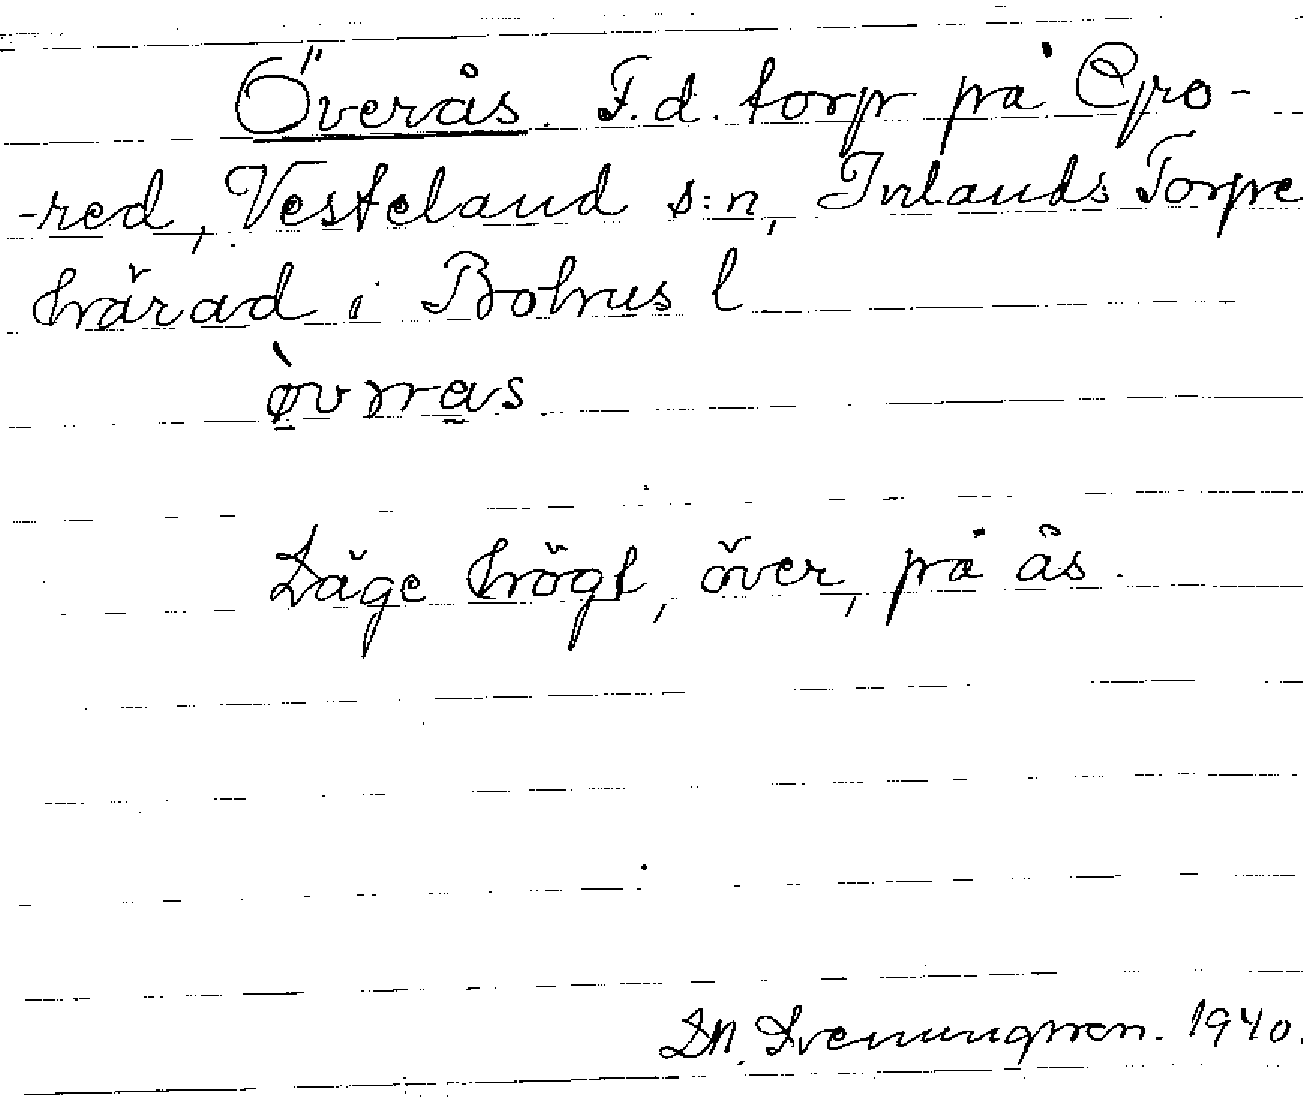 Överås. F.d. torp på Gro-
-red, Vesteland s:n, Inlands Torpe
härad i Bohus l
Läge högt, över, på ås.
1940.